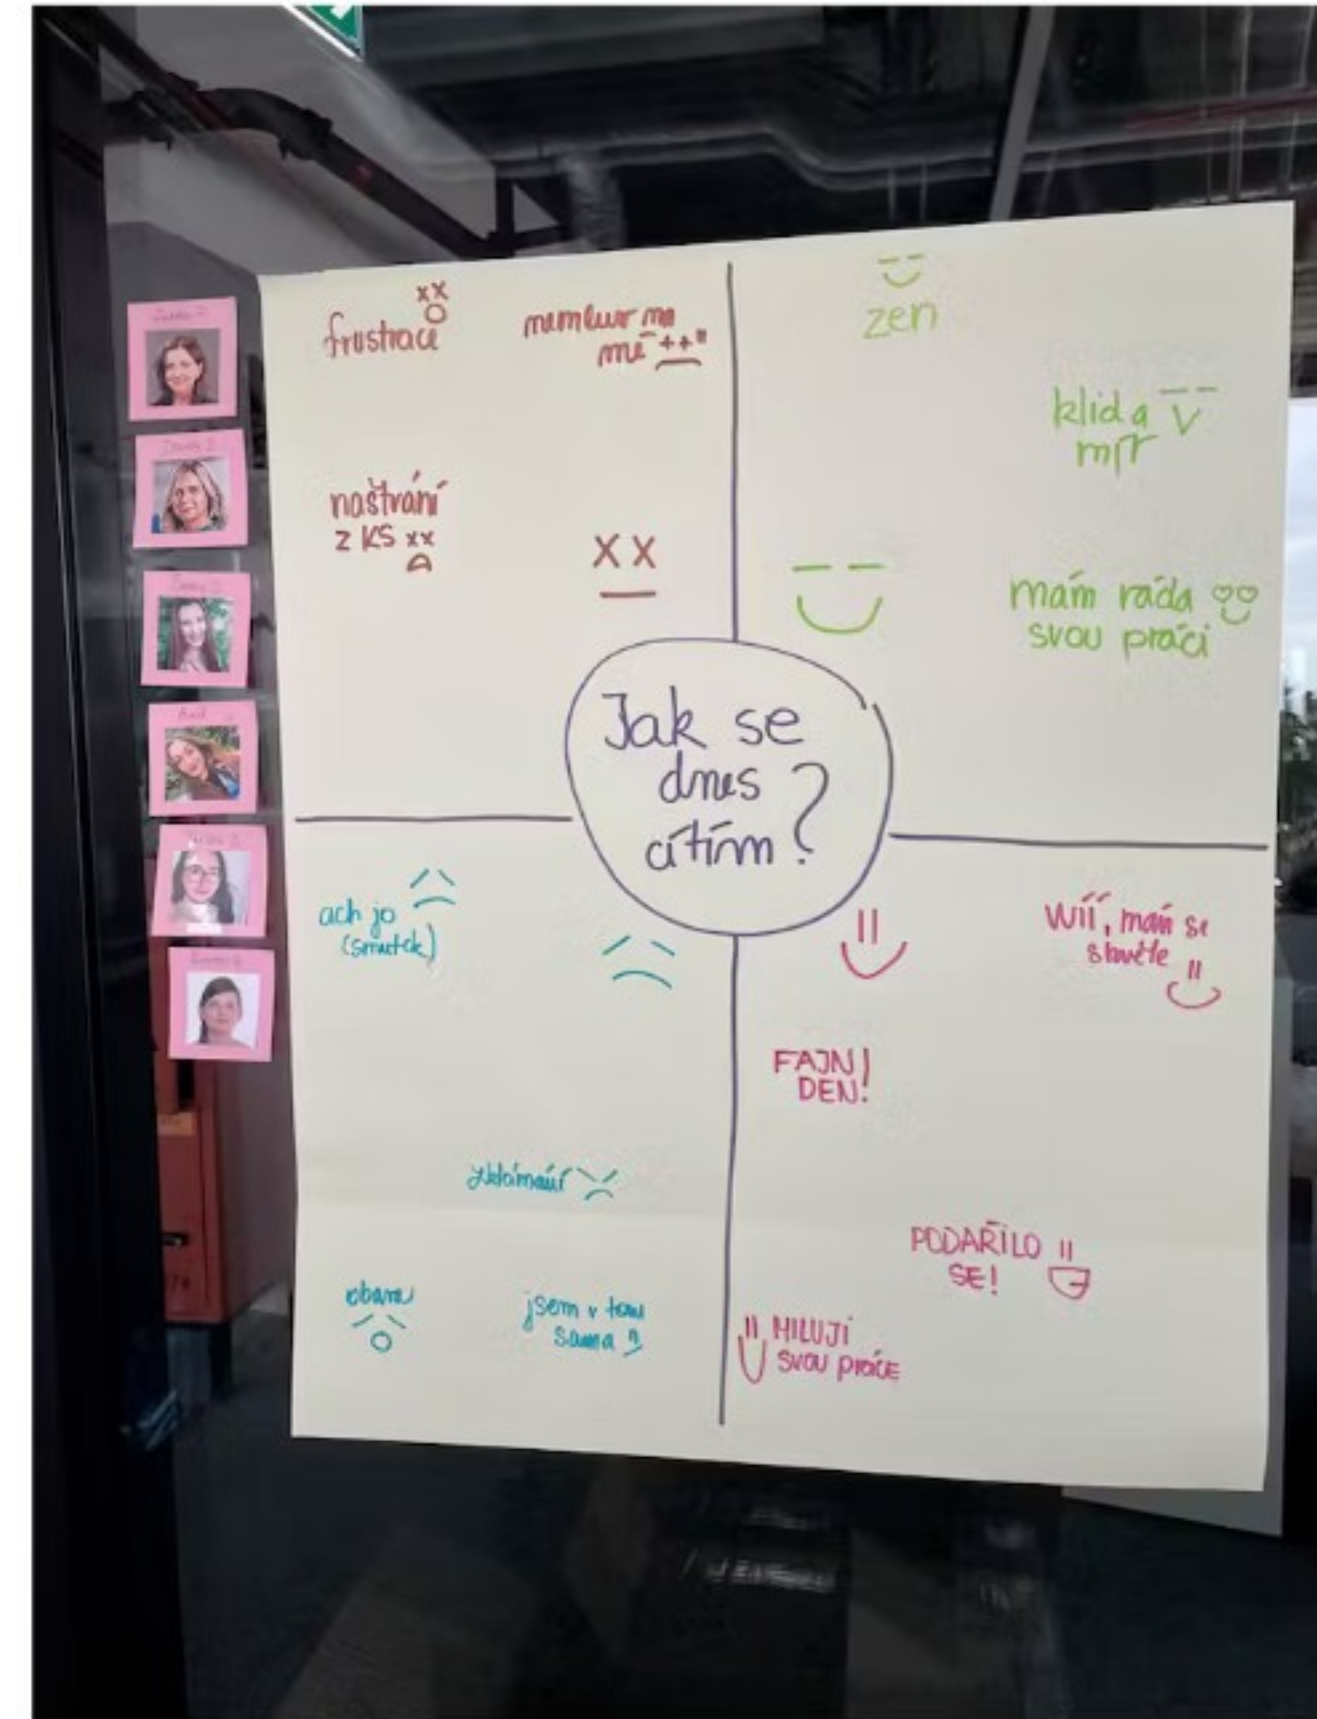 frustrace
nemluv na
mě
naštvání
z KS
zen
klid a
mír
mám ráda
svou práci
Jak se
dnes
cítím?
ach jo
(smutek)
zklamání
obavy
jsem v tom
sama
wíí, mám se
skvěle
FAJN
DEN!
PODAŘILO
SE!
MILUJI
SVOU PRÁCE